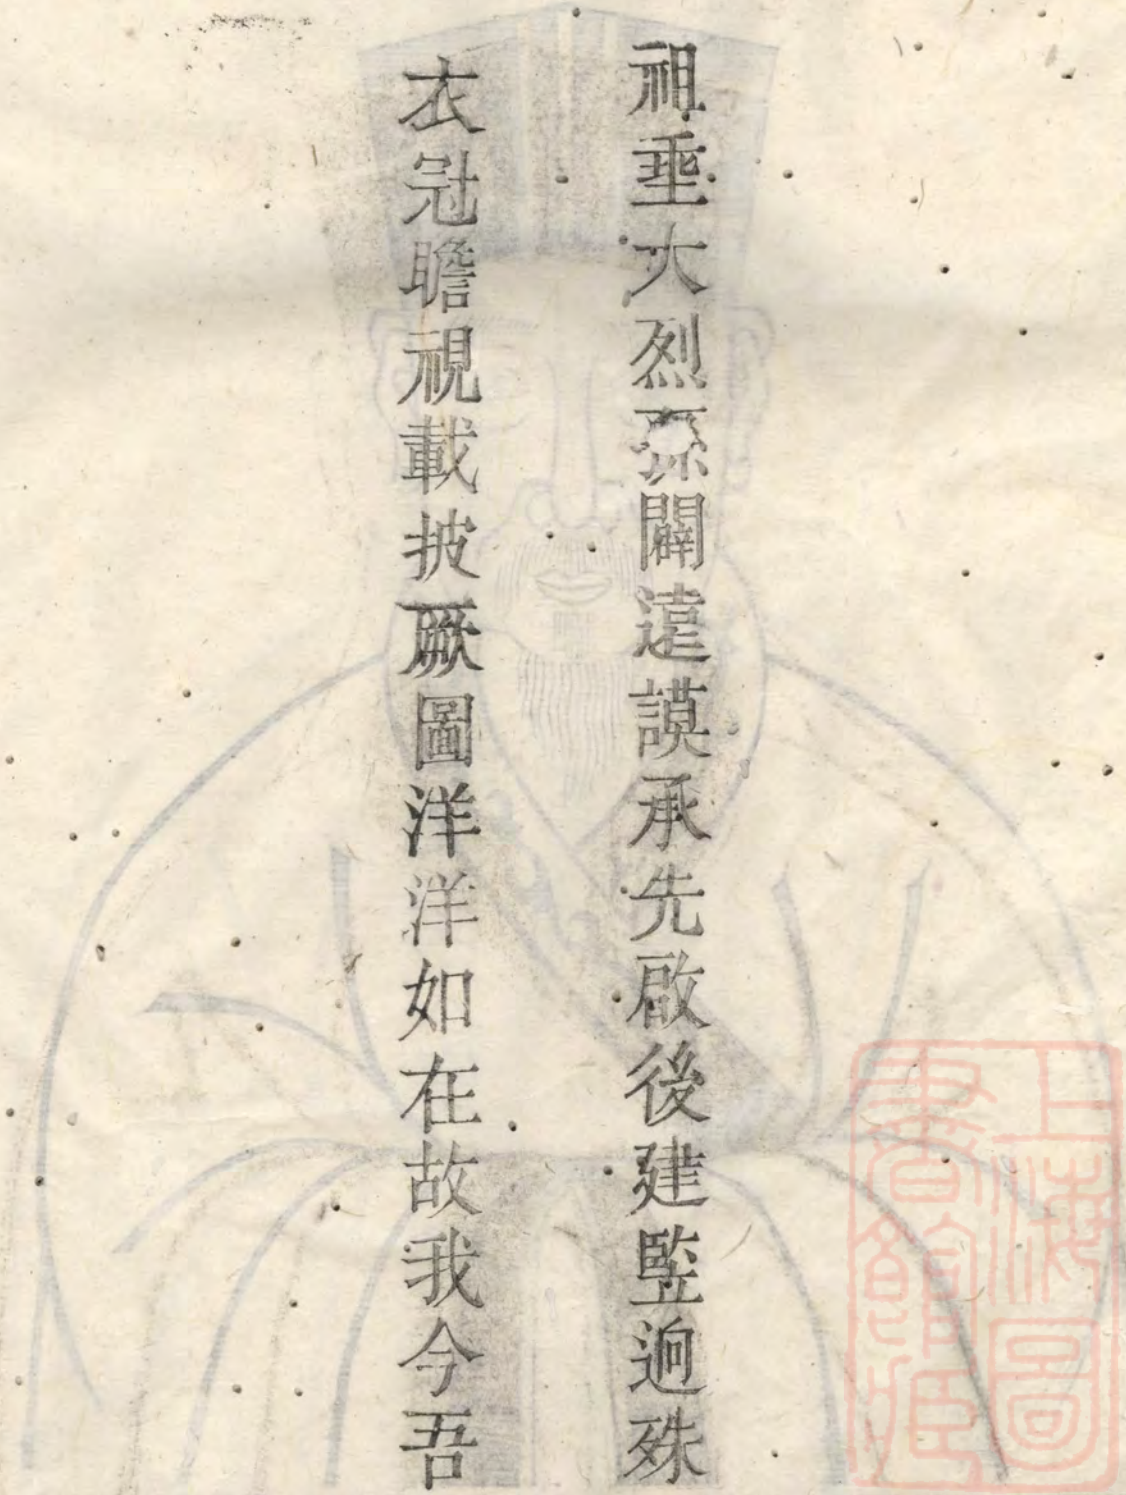 祖垂大烈孫闢遠謨承先啟後建竪逈殊
衣冠瞻視載披厥圖洋洋如在故我今吾
上海圖
書館藏